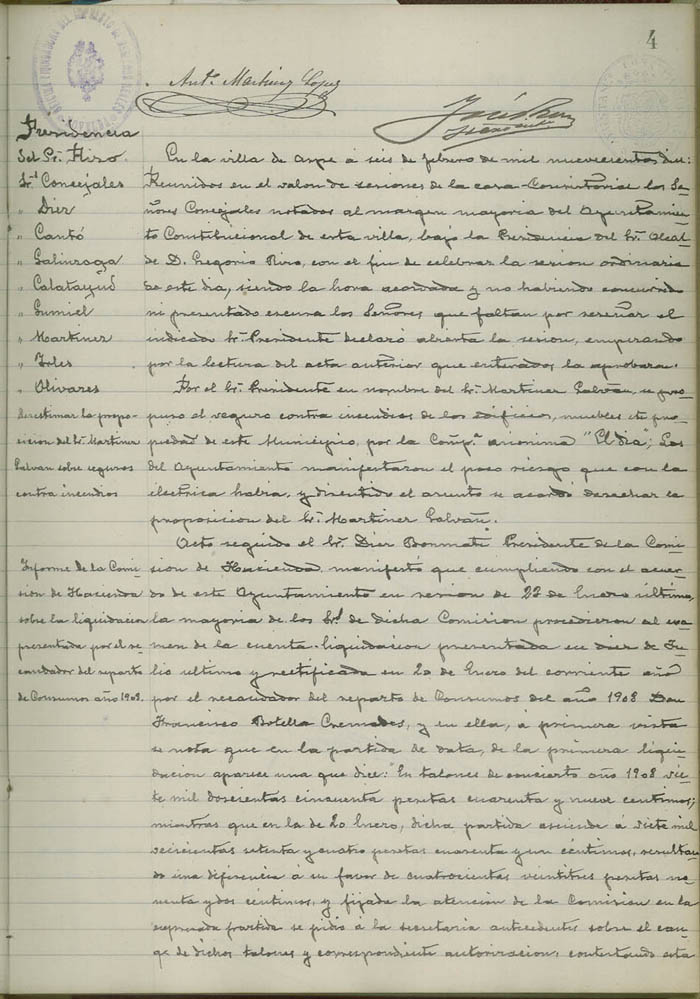 4
Antº Martinez Lopez
Presidencia
del Sr. Miro.
Srs Concejales
" Diez
" Cantó
" Galinsoga
" Calatayud
" Gumiel
" Martinez
" Irles
" Olivares
desestimar la propo-
sicion del Sr. Martinez
Galvan sobre seguros
contra incendios
Informe de la Comi-
sion de Hacienda
sobre la liquidacion
presentada por el re-
caudador del reparto
de Consumos año 1908.
En la villa de Aspe á seis de febrero de mil nuevecientos diez:
Reunidos en el salon de sesiones de la casa-Consistorial los Se-
ñores Concejales notados al margen mayoria del Ayuntamien-
to Constitucional de esta villa, bajo la Presidencia del Sr. Alcal-
de D. Gregorio Miro, con el fin de celebrar la sesion ordinaria
de este dia, siendo la hora acordada y no habiendo concurrido
ni presentado escusa los Señores que faltan por reseñar el
indicado Sr. Presidente declaró abierta la sesion, empezando
por la lectura del acta anterior que enterados la aprobaron.
Por el Sr. Presidente en nombre del Sr. Martinez Galván, se pro-
puso el seguro contra incendios de los edificios, muebles etc pro-
piedad de este Municipio, por la Compª anonima "El dia; Los
del Ayuntamiento manifestaron el poco riesgo que con la
electrica habia, y discutido el asunto se acordó desechar la
proposicion del Sr. Martinez Galván.
Acto seguido el Sr. Diez Bonmati Presidente de la Comi-
sion de Hacienda, manifesto que cumpliendo con el acuer-
do de este Ayuntamiento en sesion de 22 de Enero último,
la mayoria de los Srs de dicha Comision procedieron al exa-
men de la cuenta-liquidacion presentada en diez de Ju-
lio ultimo y rectificada en 20 de Enero del corriente año
por el recaudador del reparto de Consumos del año 1908 Don
Francisco Botella Cremades, y en ella, á primera vista
se nota que en la partida de data, de la primera liqui-
dacion aparece una que dice: "En talones de concierto año 1908 sie-
te mil doscientas cincuenta pesetas cuarenta y nueve centimos;
mientras que en la de 20 Enero, dicha partida asciende á siete mil
seiscientas setenta y cuatro pesetas cuarenta y un centimos, resultan-
do una diferencia á su favor de cuatrocientas veintitres pesetas no-
venta y dos centimos, y fijada la atencion de la Comision en la
expresada partida se pidio á la secretaria antecedentes sobre el can-
ge de dichos talones y correspondiente autorizacion: contestando esta